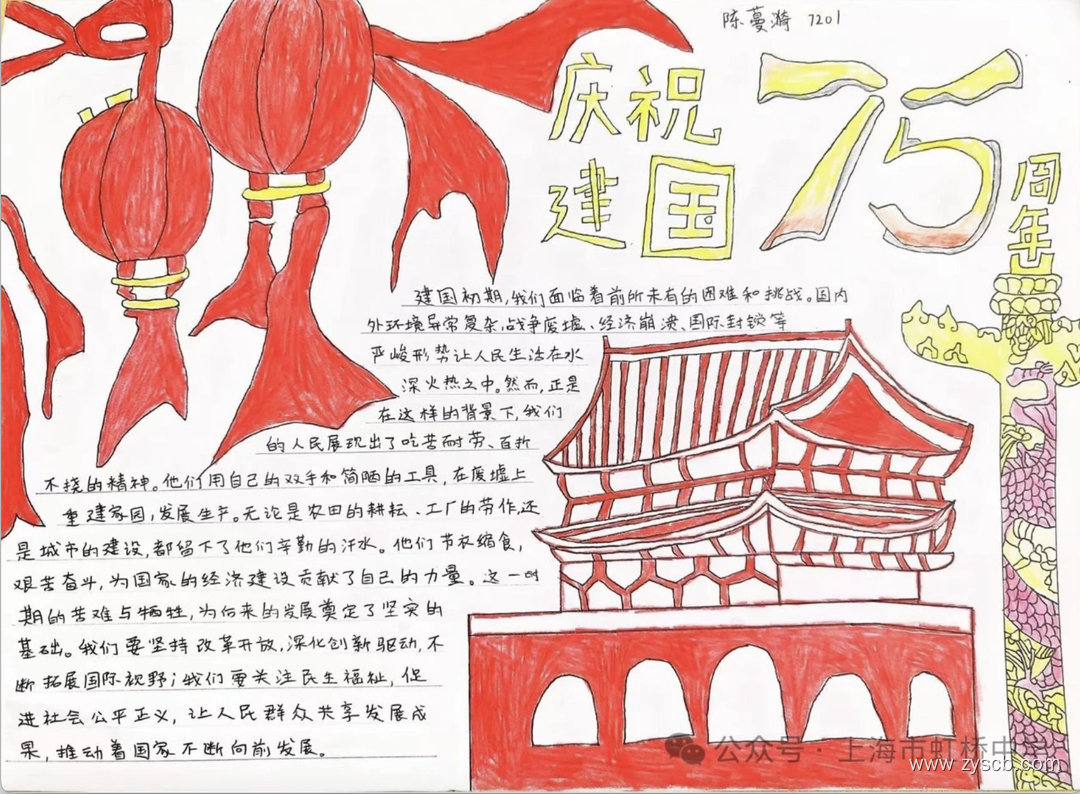 陈蔓漪 7201
庆祝
建国
75
周年
建国初期,我们面临着前所未有的困难和挑战。国内
外环境异常复杂,战争废墟、经济崩溃、国际封锁等
严峻形势让人民生活在水
深火热之中。然而,正是
在这样的背景下,我们
的人民展现出了吃苦耐劳、百折
不挠的精神。他们用自己的双手和简陋的工具,在废墟上
重建家园,发展生产。无论是农田的耕耘、工厂的劳作,还
是城市的建设,都留下了他们辛勤的汗水。他们节衣缩食,
艰苦奋斗,为国家的经济建设贡献了自己的力量。这一时
期的苦难与牺牲,为后来的发展奠定了坚实的
基础。我们要坚持改革开放,深化创新驱动,不
断拓展国际视野;我们要关注民生福祉,促
进社会公平正义,让人民群众共享发展成
果,推动着国家不断向前发展。
公众号·上海市虹桥中学
www.zyscb.com